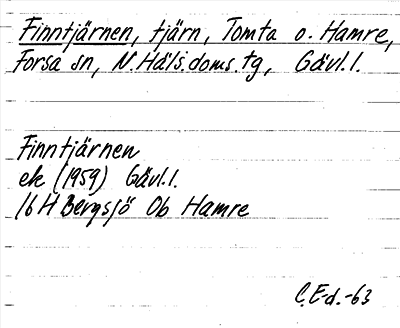 Finntjärnen, tjärn, Tomta o. Hamre,
Forsa sn, N.Häls.doms.tg, Gävl.l.
Finntjärnen
ek (1959) Gävl.l.
16 H Bergsjö Ob Hamre
C.E-d.-63